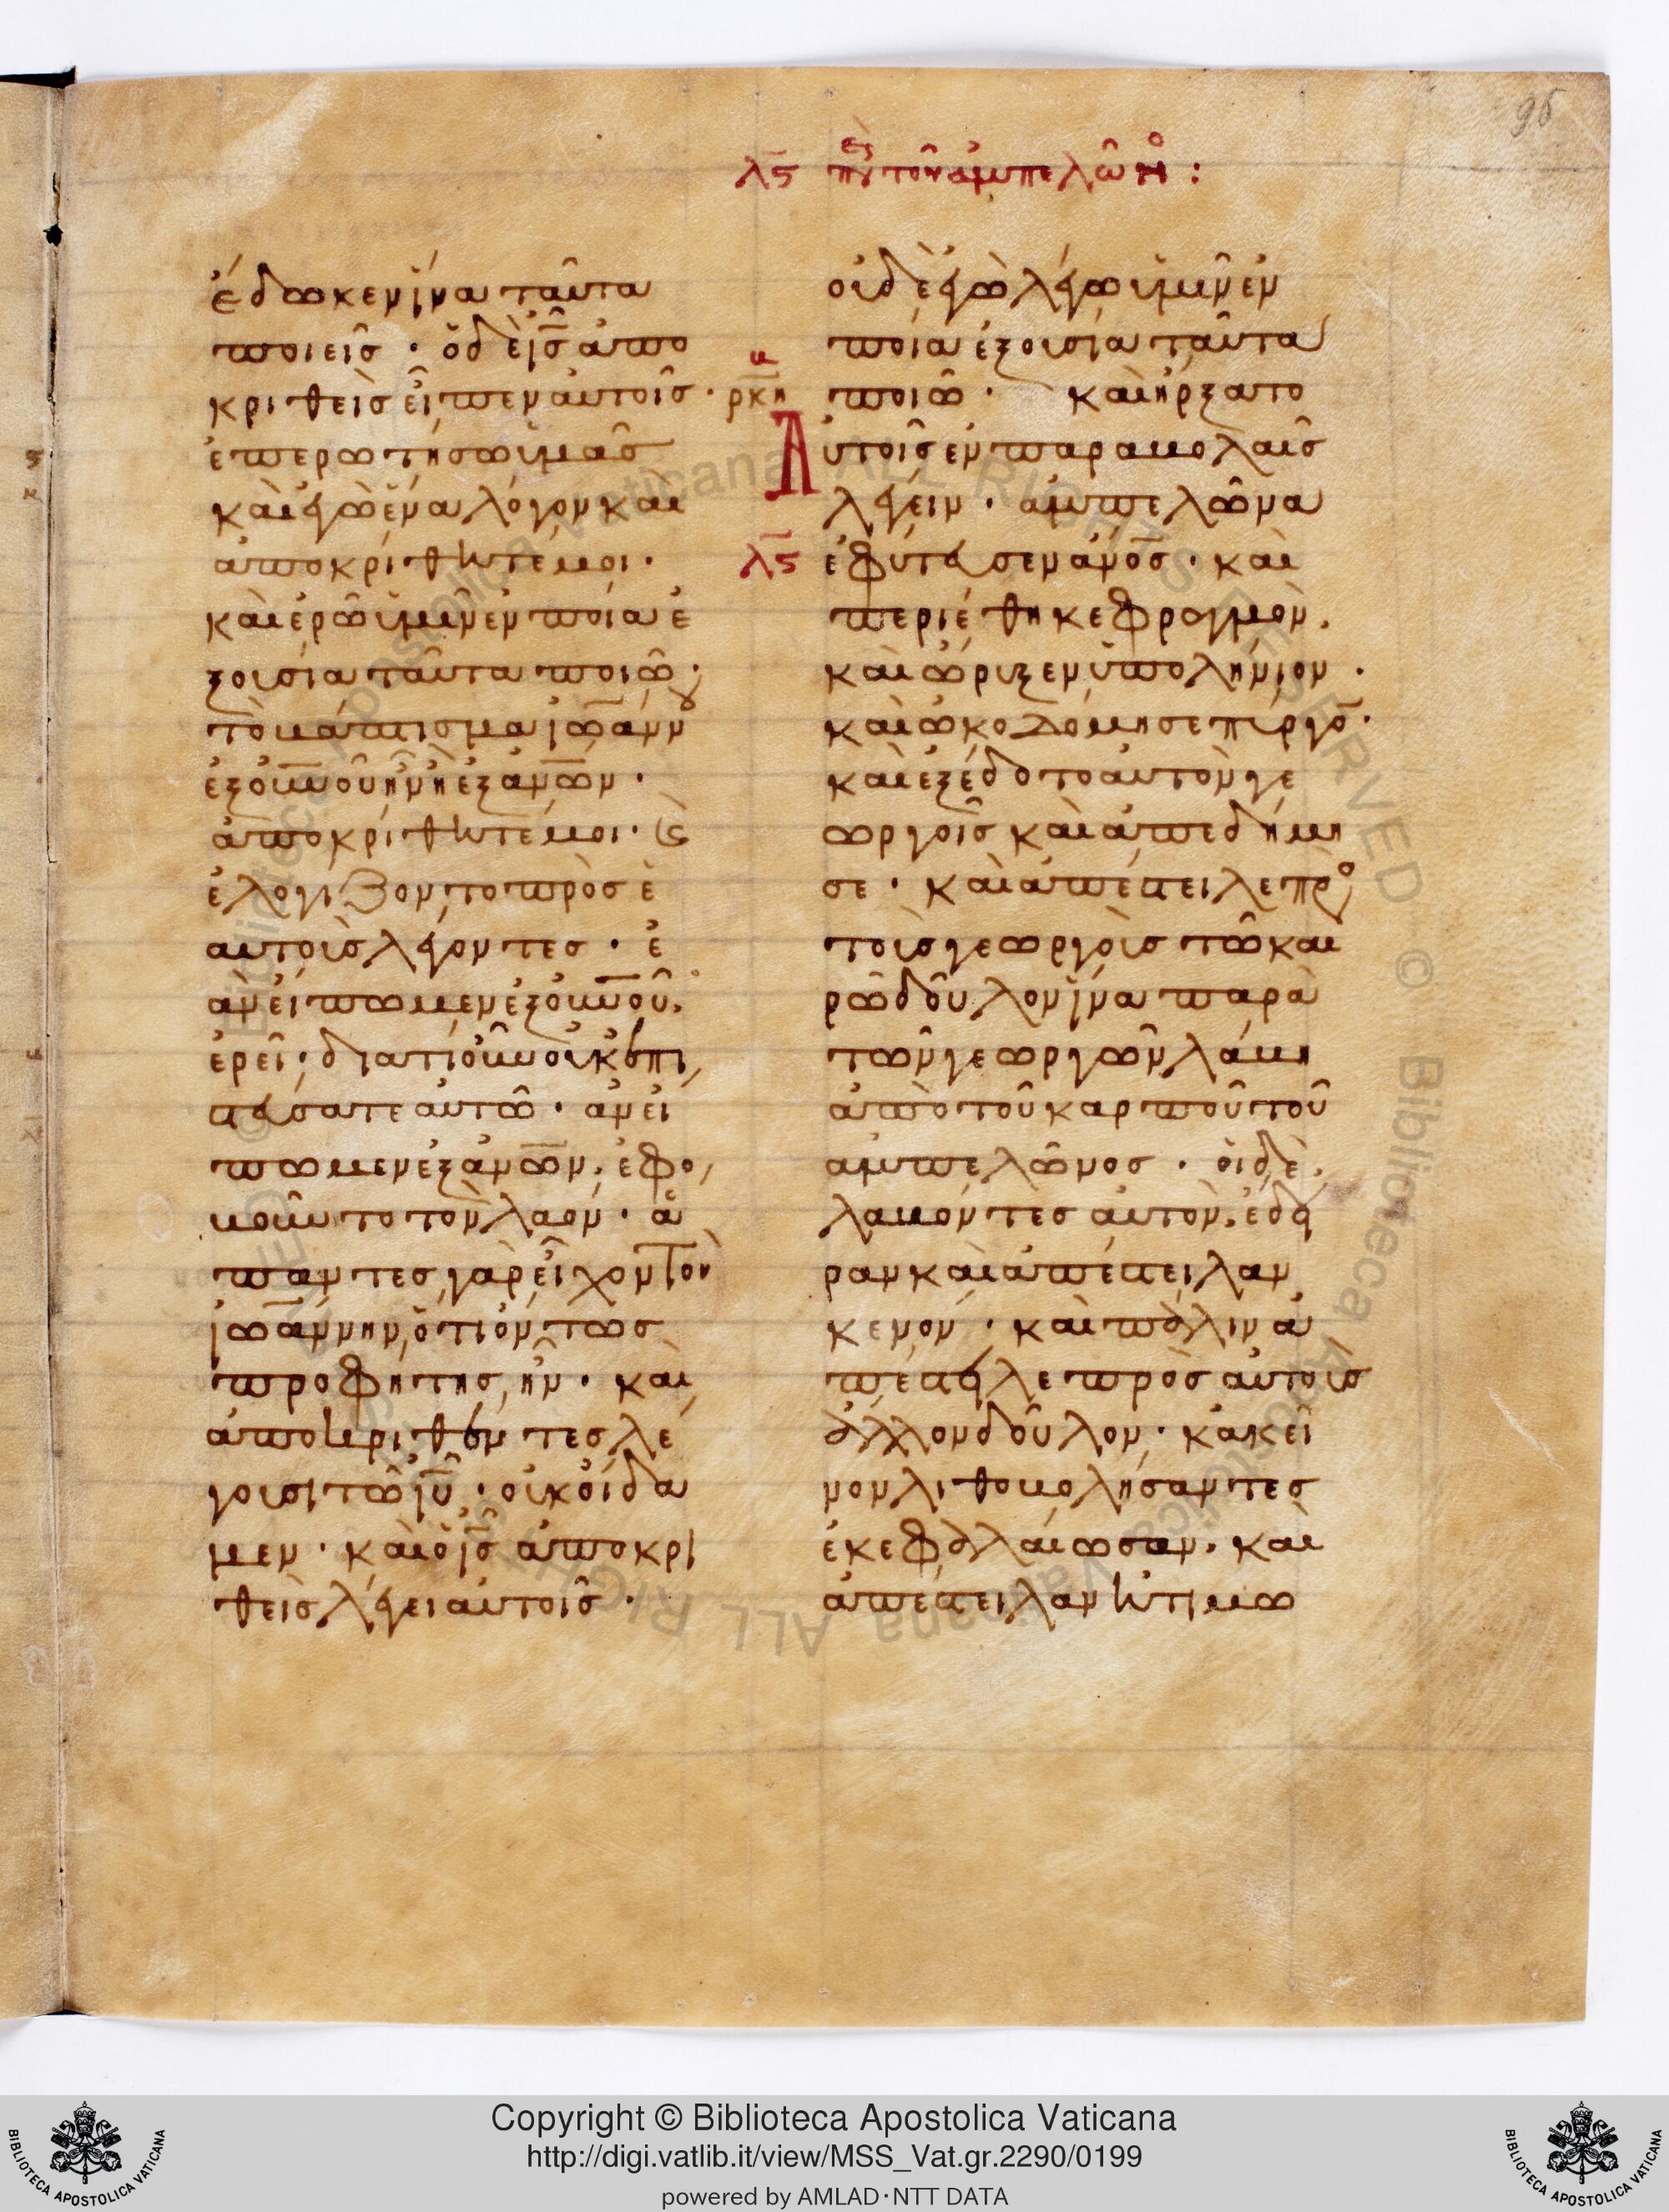 95
λς περὶ τοῦ ἀμπελῶνος :
ἔδωκεν ἵνα ταῦτα
ποιεῖς · ὁ δὲ ις̅ ἀπο
κριθεὶς εἶπεν αὐτοῖς ·
ἐπερωτήσω ὑμᾶς
κἀγὼ ἕνα λόγον καὶ
ἀποκρίθητέ μοι ·
καὶ ἐρῶ ὑμῖν ἐν ποία ἐ
ξουσία ταῦτα ποιῶ ·
τὸ βάπτισμα ἰω̅άννου
ἐξ οὐ̅νοῦ ἦν ἢ ἐξ ἀν̅ων ·
ἀποκρίθητέ μοι · καὶ
ἐλογίζοντο πρὸς ἑ
αυτοὺς λέγοντες · ἐ
ὰν εἴπωμεν ἐξ οὐ̅νοῦ.
ἐρεῖ · διατί οὖν οὐκ ἐπι
στεύσατε αὐτῶ · ἀν εἴ
πωμεν ἐξ ἀν̅ων, ἐφο
βοῦντο τὸν λαόν · ἅ
παντες γὰρ εἶχον τὸν
ἰω̅άννην, ὅτι ὄντως
προφήτης ἦν · καὶ
ἀποκριθέντες λέ
γουσι τῶ ιυ̅ · οὐκ οἴδα
μεν · καὶ ὁ ις̅ ἀποκρι
θεὶς λέγει αὐτοῖς ·
οὐδὲ ἐγὼ λέγω ὑμῖν ἐν
ποία ἐξουσία ταῦτα
ρκη
β
ποιῶ · καὶ ἤρξατο
Αὐτοῖς ἐν παραβολαῖς
λέγειν · ἀμπελῶνα
λς ἐφύτευσεν ἀν̅ος · καὶ
περιέθηκε φραγμὸν.
καὶ ὤρυξεν ὑπολήνιον ·
καὶ ὠκοδόμησε πύργο̅ ·
καὶ ἐξέδοτο αὐτὸν γε
ωργοῖς καὶ ἀπεδήμη
σε · καὶ ἀπέστειλε πρὸς
τοὺς γεωργοὺς τῶ και
ρῶ δοῦλον ἵνα παρὰ
τῶν γεωργῶν λάβη
ἀπὸ τοῦ καρποῦ τοῦ
ἀμπελῶνος · οἱ δὲ.
λαβόντες αὐτὸν. ἔδει
ραν καὶ ἀπέστειλαν
κενόν · καὶ πάλιν ἀ
πέστειλε πρὸς αὐτοὺς
ἄλλον δοῦλον · κἀκεῖ
νον λιθοβολήσαντες
ἐκεφαλαίωσαν. καὶ
ἀπέστειλαν ἠτιμω
Copyright © Biblioteca Apostolica Vaticana
http://digi.vatlib.it/view/MSS_Vat.gr.2290/0199
powered by AMLAD·NTT DATA
BIBLIOTECA APOSTOLICA VATICANA
BIBLIOTECA APOSTOLICA VATICANA